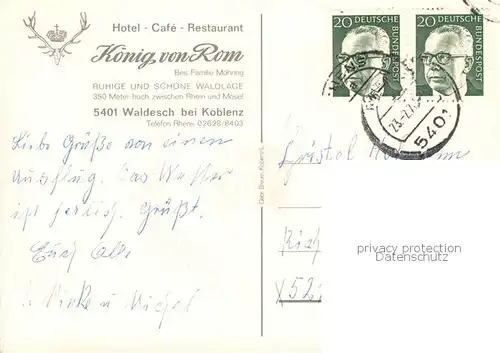 Hotel - Café - Restaurant
König von Rom
Bes. Familie Möhring
RUHIGE UND SCHÖNE WALDLAGE
350 Meter hoch zwischen Rhein und Mosel
5401 Waldesch bei Koblenz
Telefon Rhens 02628/8403
Liebe Grüße von einem
Ausflug. Das Wetter
ist herrlich. Grüßt
Euch alle
u. Michel
20 DEUTSCHE BUNDESPOST
20 DEUTSCHE BUNDESPOST
5401
privacy protection
Datenschutz